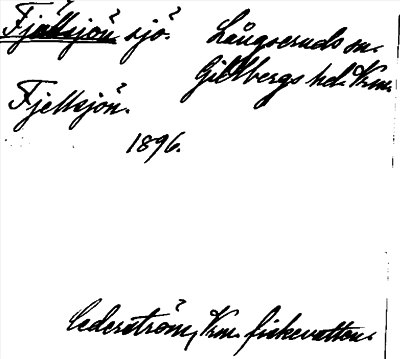 Fjällsjön sjö. Långseruds sn.
Gillbergs hd. Vrm.
Fjellsjön.
1896.
Cederström, Vrm. fiskevatten.